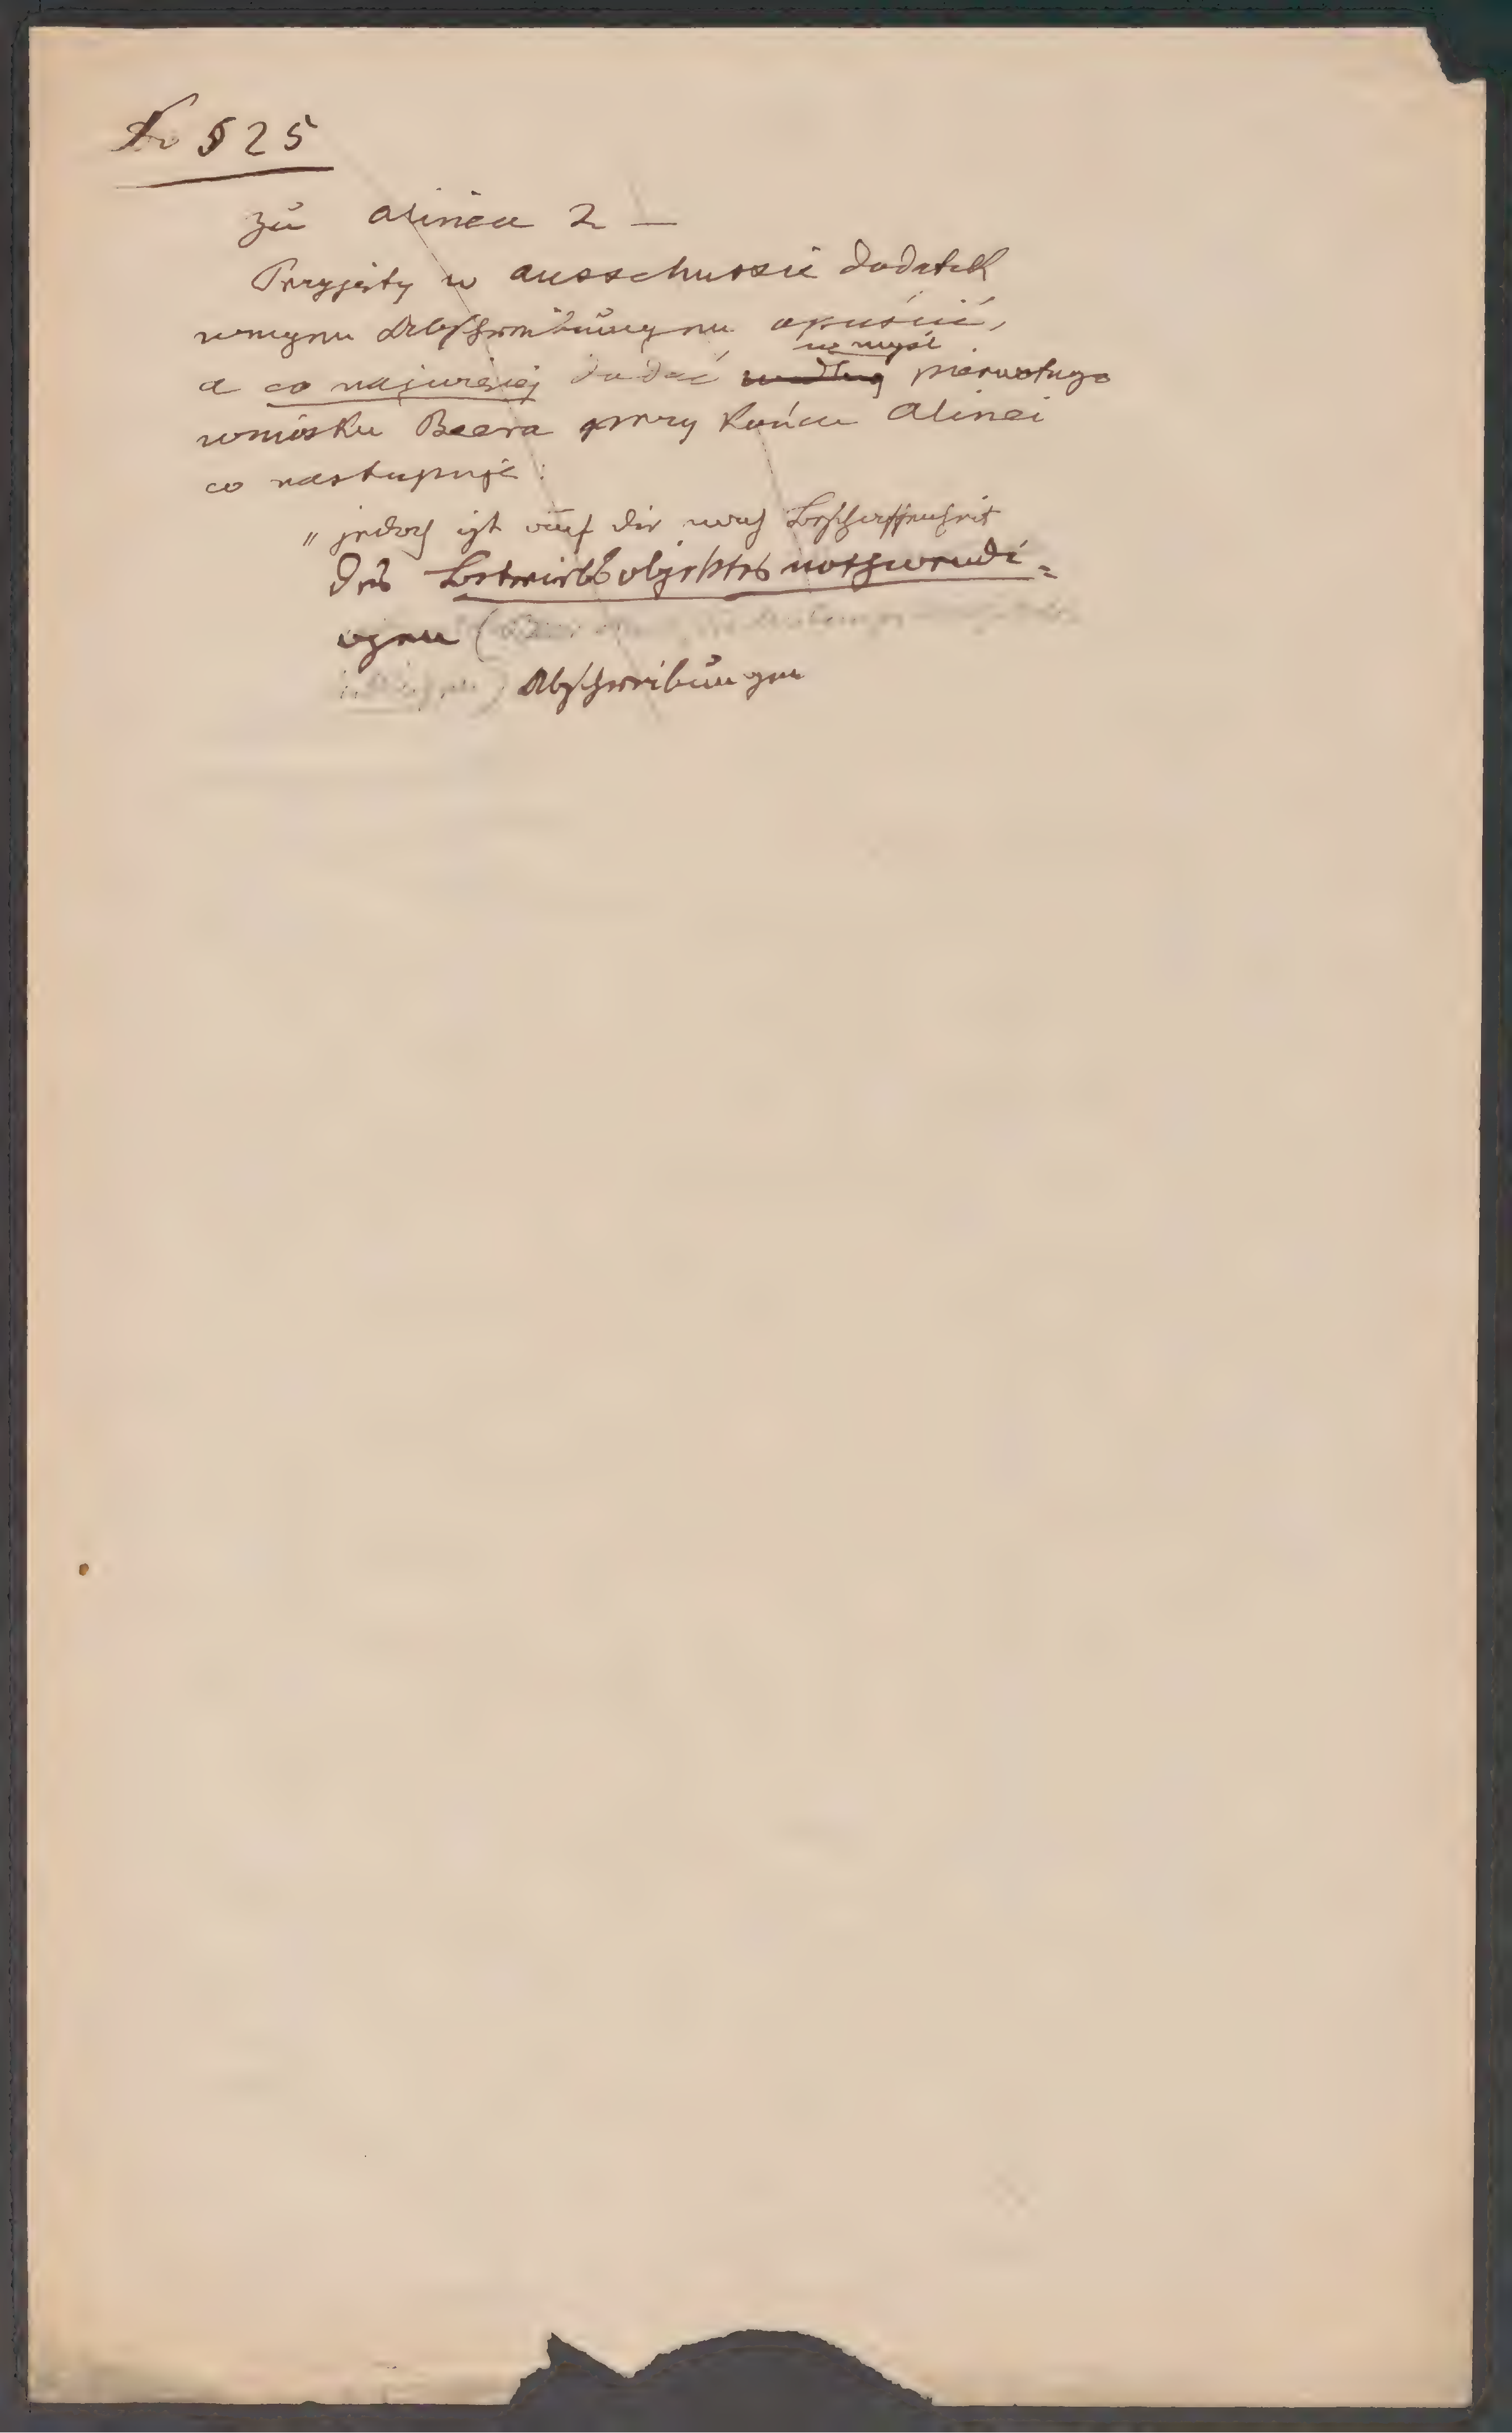 § 25
zu alinea 2 —
Przyjęty w ausschussie dodatek
wegen Abschreibungen opuścić,
w myśl
a co najwięcej dodać według pierwotnego
wniosku Beera przy końcu Alinei
co następuje:
"jedoch ist auf die nach Beschaffenheit
des Betriebsobjektes nothwendi=
gen (
) Abschreibungen